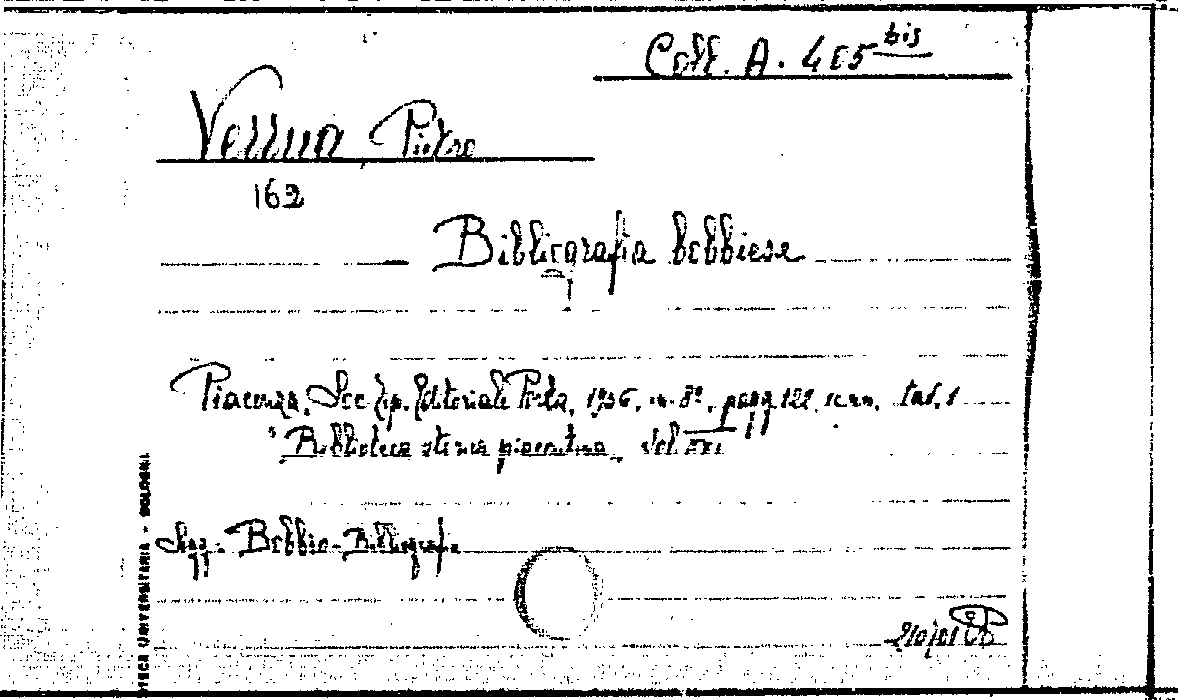 Coll. A. 405 bis
Verrua Pietro
162
Bibliografia bobbiese
Piacenza, Soc. Tip. Editoriale Porta, 1936, in-8°, pagg 122, tav. 1
Biblioteca storica piacentina, vol. XXI
Sogg. - Bobbio - Bibliografia
UNIVERSITARIA - BOLOGNA